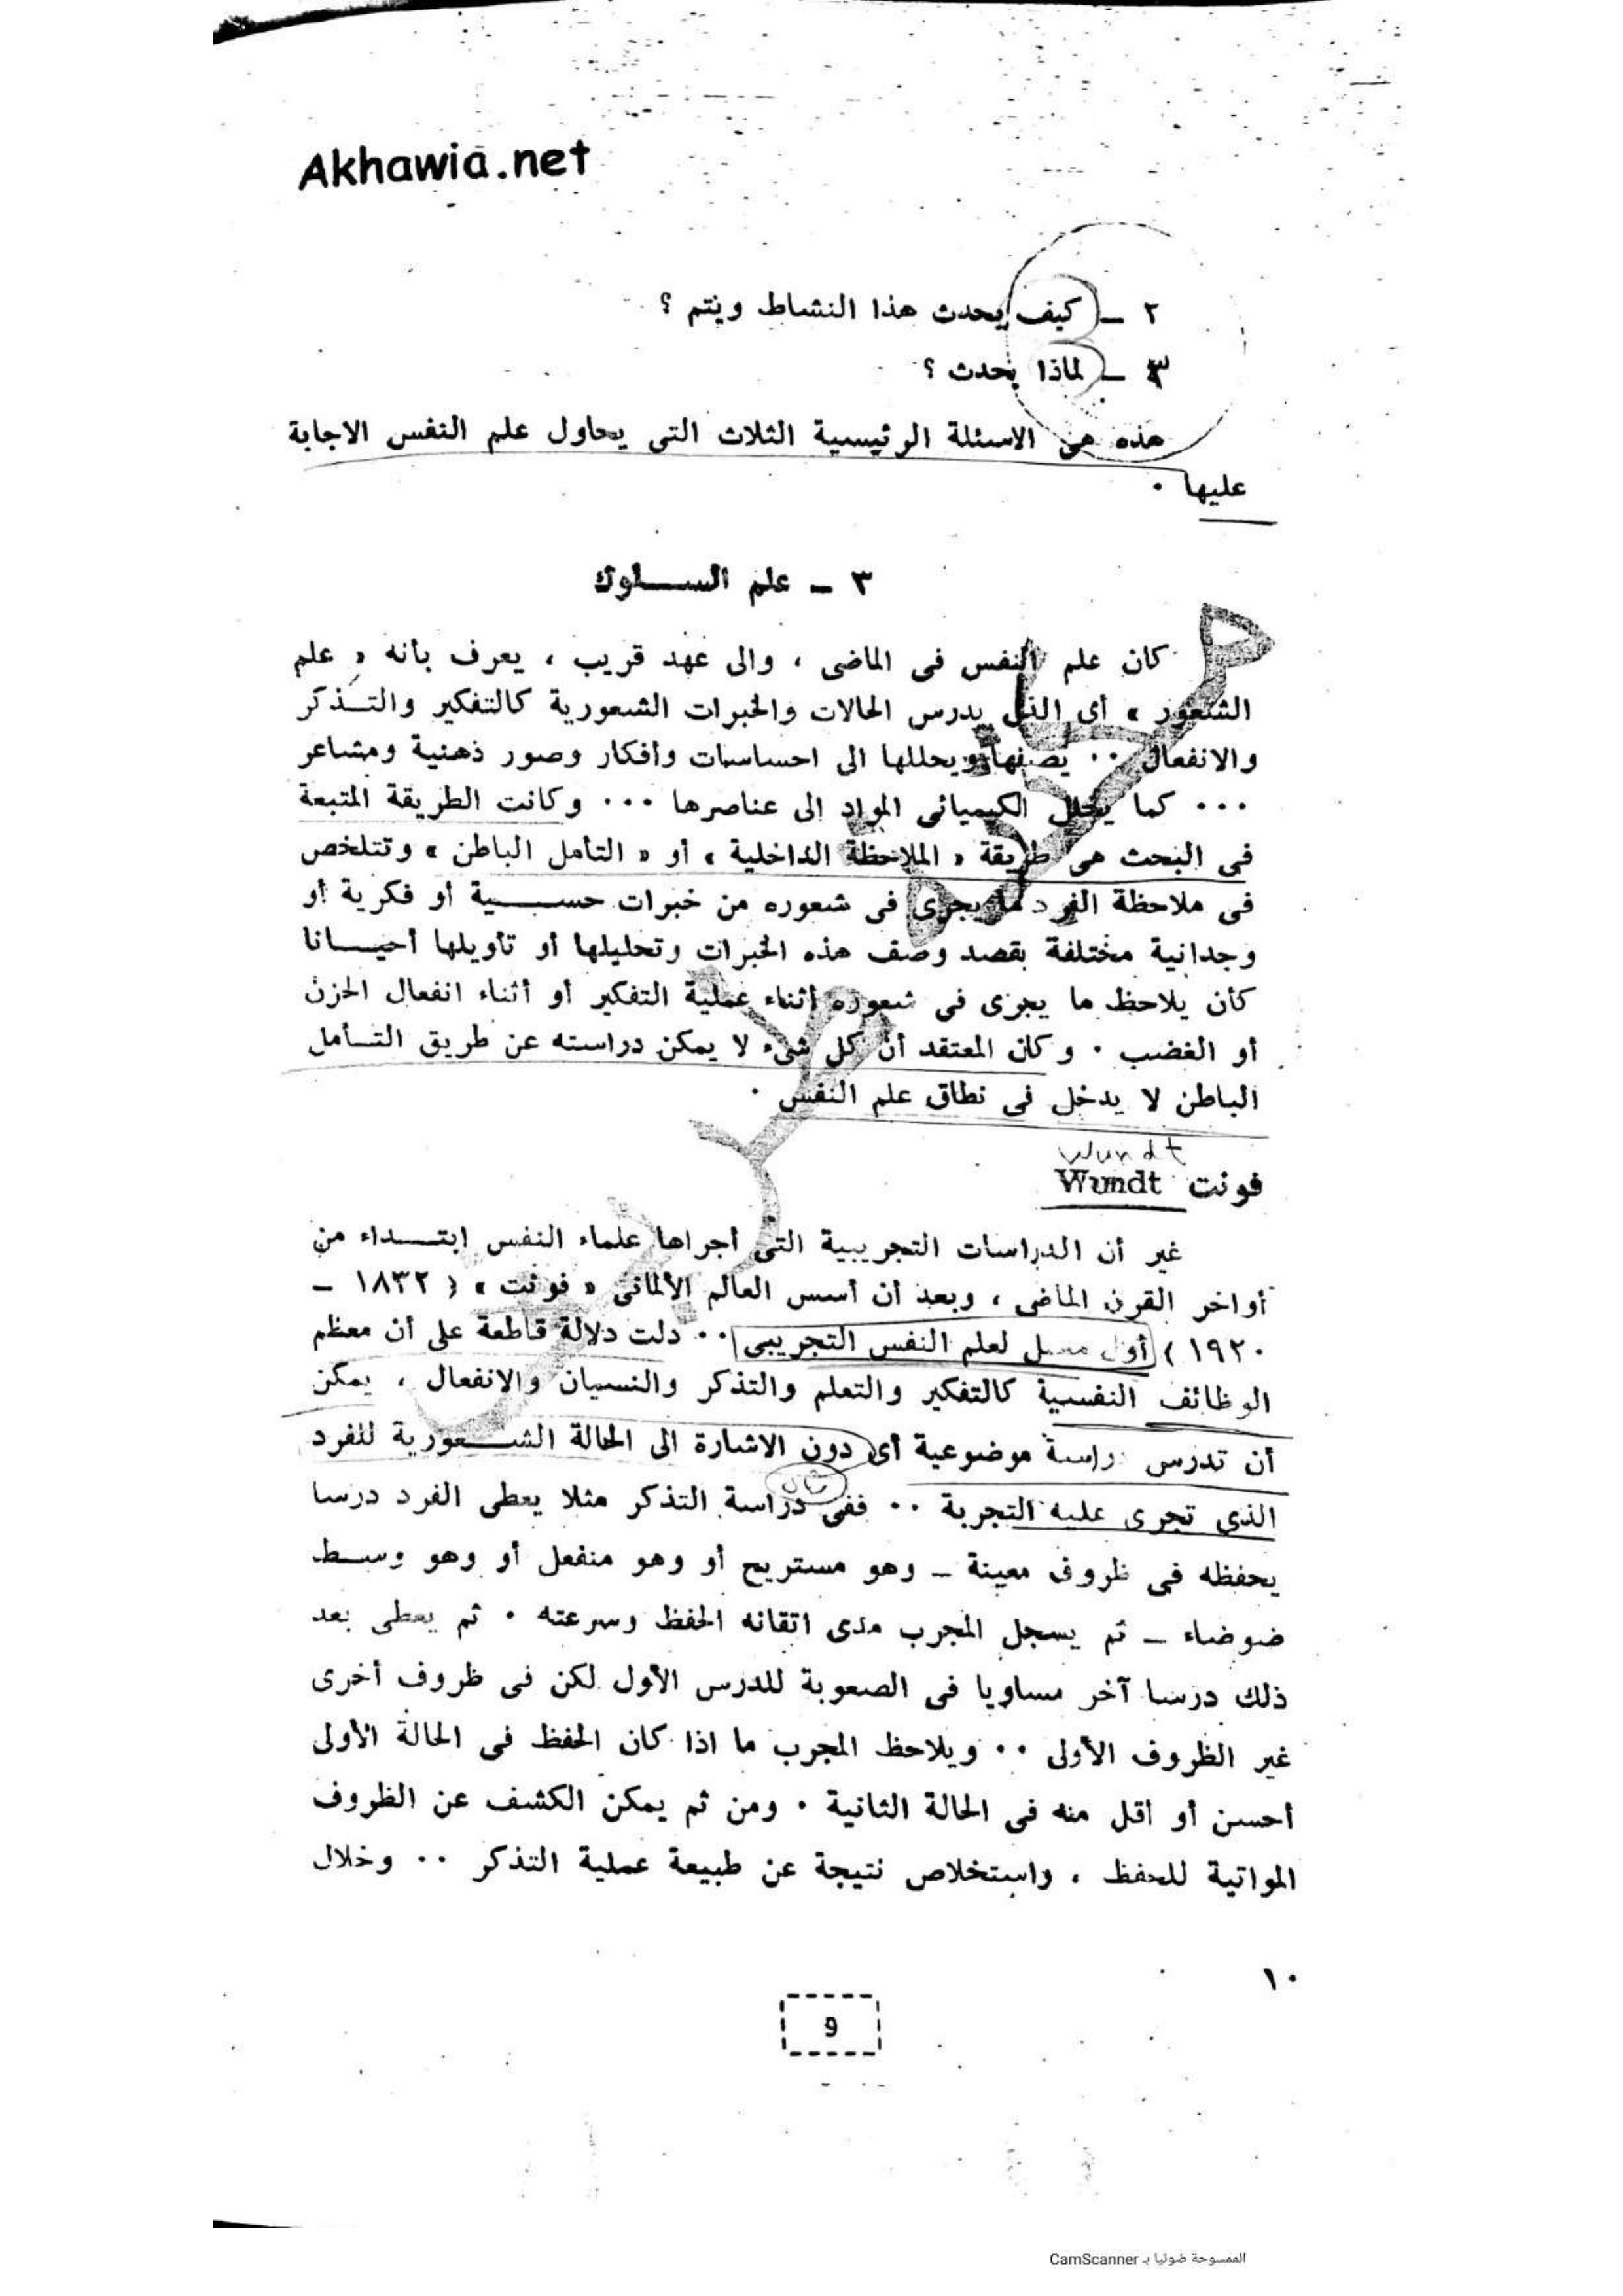 Akhawia.net
٢ ــ كيف يحدث هذا النشاط ويتم ؟
٣ ــ لماذا يحدث ؟
هذه هى الاسئلة الرئيسية الثلاث التى يحاول علم النفس الاجابة
عليها ٠
٣ ــ علم الســـلوك
كان علم النفس فى الماضى ، والى عهد قريب ، يعرف بأنه « علم
الشعور » أى الذى يدرس الحالات والخبرات الشعورية كالتفكير والتـذكر
والانفعال ٠٠ يصفها ويحللها الى احساسات وأفكار وصور ذهنية ومشاعر
٠٠٠ كما يحلل الكيميائى المواد إلى عناصرها ٠٠٠ وكانت الطريقة المتبعة
فى البحث هى طريقة « الملاحظة الداخلية » أو « التأمل الباطن » وتتلخص
فى ملاحظة الفرد ما يجرى فى شعوره من خبرات حســـية أو فكرية أو
وجدانية مختلفة بقصد وصف هذه الخبرات وتحليلها أو تأويلها أحيـــانا
كأن يلاحظ ما يجرى فى شعوره أثناء عملية التفكير أو أثناء انفعال الحزن
أو الغضب ٠ وكان المعتقد أن كل شىء لا يمكن دراسته عن طريق التـأمل
الباطن لا يدخل فى نطاق علم النفس ٠
Wundt
فونت Wundt
غير أن الدراسات التجريبية التى أجراها علماء النفس ابتـــداء من
أواخر القرن الماضى ، وبعد أن أسس العالم الألمانى « فونت » ( ١٨٣٢ ــ
١٩٢٠ ) أول معمل لعلم النفس التجريبى ٠٠ دلت دلالة قاطعة على أن معظم
الوظائف النفسية كالتفكير والتعلم والتذكر والنسيان والانفعال ، يمكن
أن تدرس دراسة موضوعية أى دون الاشارة الى الحالة الشـــعورية للفرد
مثال
الذى تجرى عليه التجربة ٠٠ ففى دراسة التذكر مثلا يعطى الفرد درسا
يحفظه فى ظروف معينة ــ وهو مستريح أو وهو منفعل أو وهو وســط
ضوضاء ــ ثم يسجل المجرب مدى اتقانه الحفظ وسرعته ٠ ثم يعطى بعد
ذلك درسا آخر مساويا فى الصعوبة للدرس الأول لكن فى ظروف أخرى
غير الظروف الأولى ٠٠ ويلاحظ المجرب ما اذا كان الحفظ فى الحالة الأولى
أحسن أو أقل منه فى الحالة الثانية ٠ ومن ثم يمكن الكشف عن الظروف
المواتية للحفظ ، واستخلاص نتيجة عن طبيعة عملية التذكر ٠٠ وخلال
١٠
9
الممسوحة ضوئيا بـ CamScanner